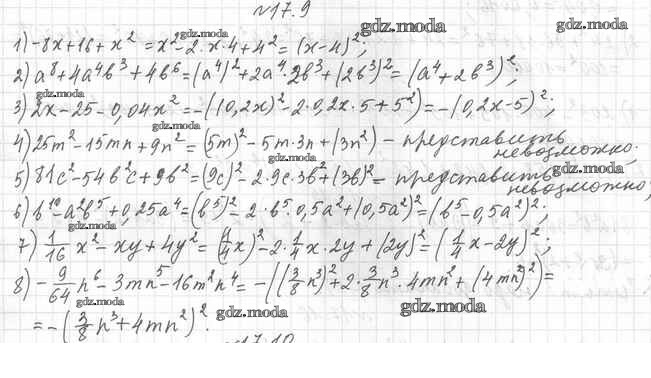 №17.9
gdz.moda
gdz.moda
1) -8x+16+x² = x²-2·x·4+4² = (x-4)²;
gdz.moda
2) a⁸+4a⁴b³+4b⁶ = (a⁴)²+2a⁴·2b³+(2b³)² = (a⁴+2b³)²;
gdz.moda
3) 2x-25-0,04x² = -((0,2x)²-2·0,2x·5+5²) = -(0,2x-5)²;
gdz.moda
4) 25m²-15mn+9n² = (5m)²-5m·3n+(3n²) - представить невозможно;
gdz.moda
gdz.moda
5) 81c²-54b²c+9b² = (9c)²-2·9c·3b²+(3b)² - представить невозможно;
6) b¹⁰-a²b⁵+0,25a⁴ = (b⁵)²-2·b⁵·0,5a²+(0,5a²)² = (b⁵-0,5a²)²;
gdz.moda
7) 1/16 x²-xy+4y² = (1/4x)²-2·1/4x·2y+(2y)² = (1/4x-2y)²;
8) -9/64 n⁶-3mn⁵-16m²n⁴ = -((3/8n³)²+2·3/8n³·4mn²+(4mn²)²) =
gdz.moda
gdz.moda
gdz.moda
= -(3/8n³+4mn²)².
17.10